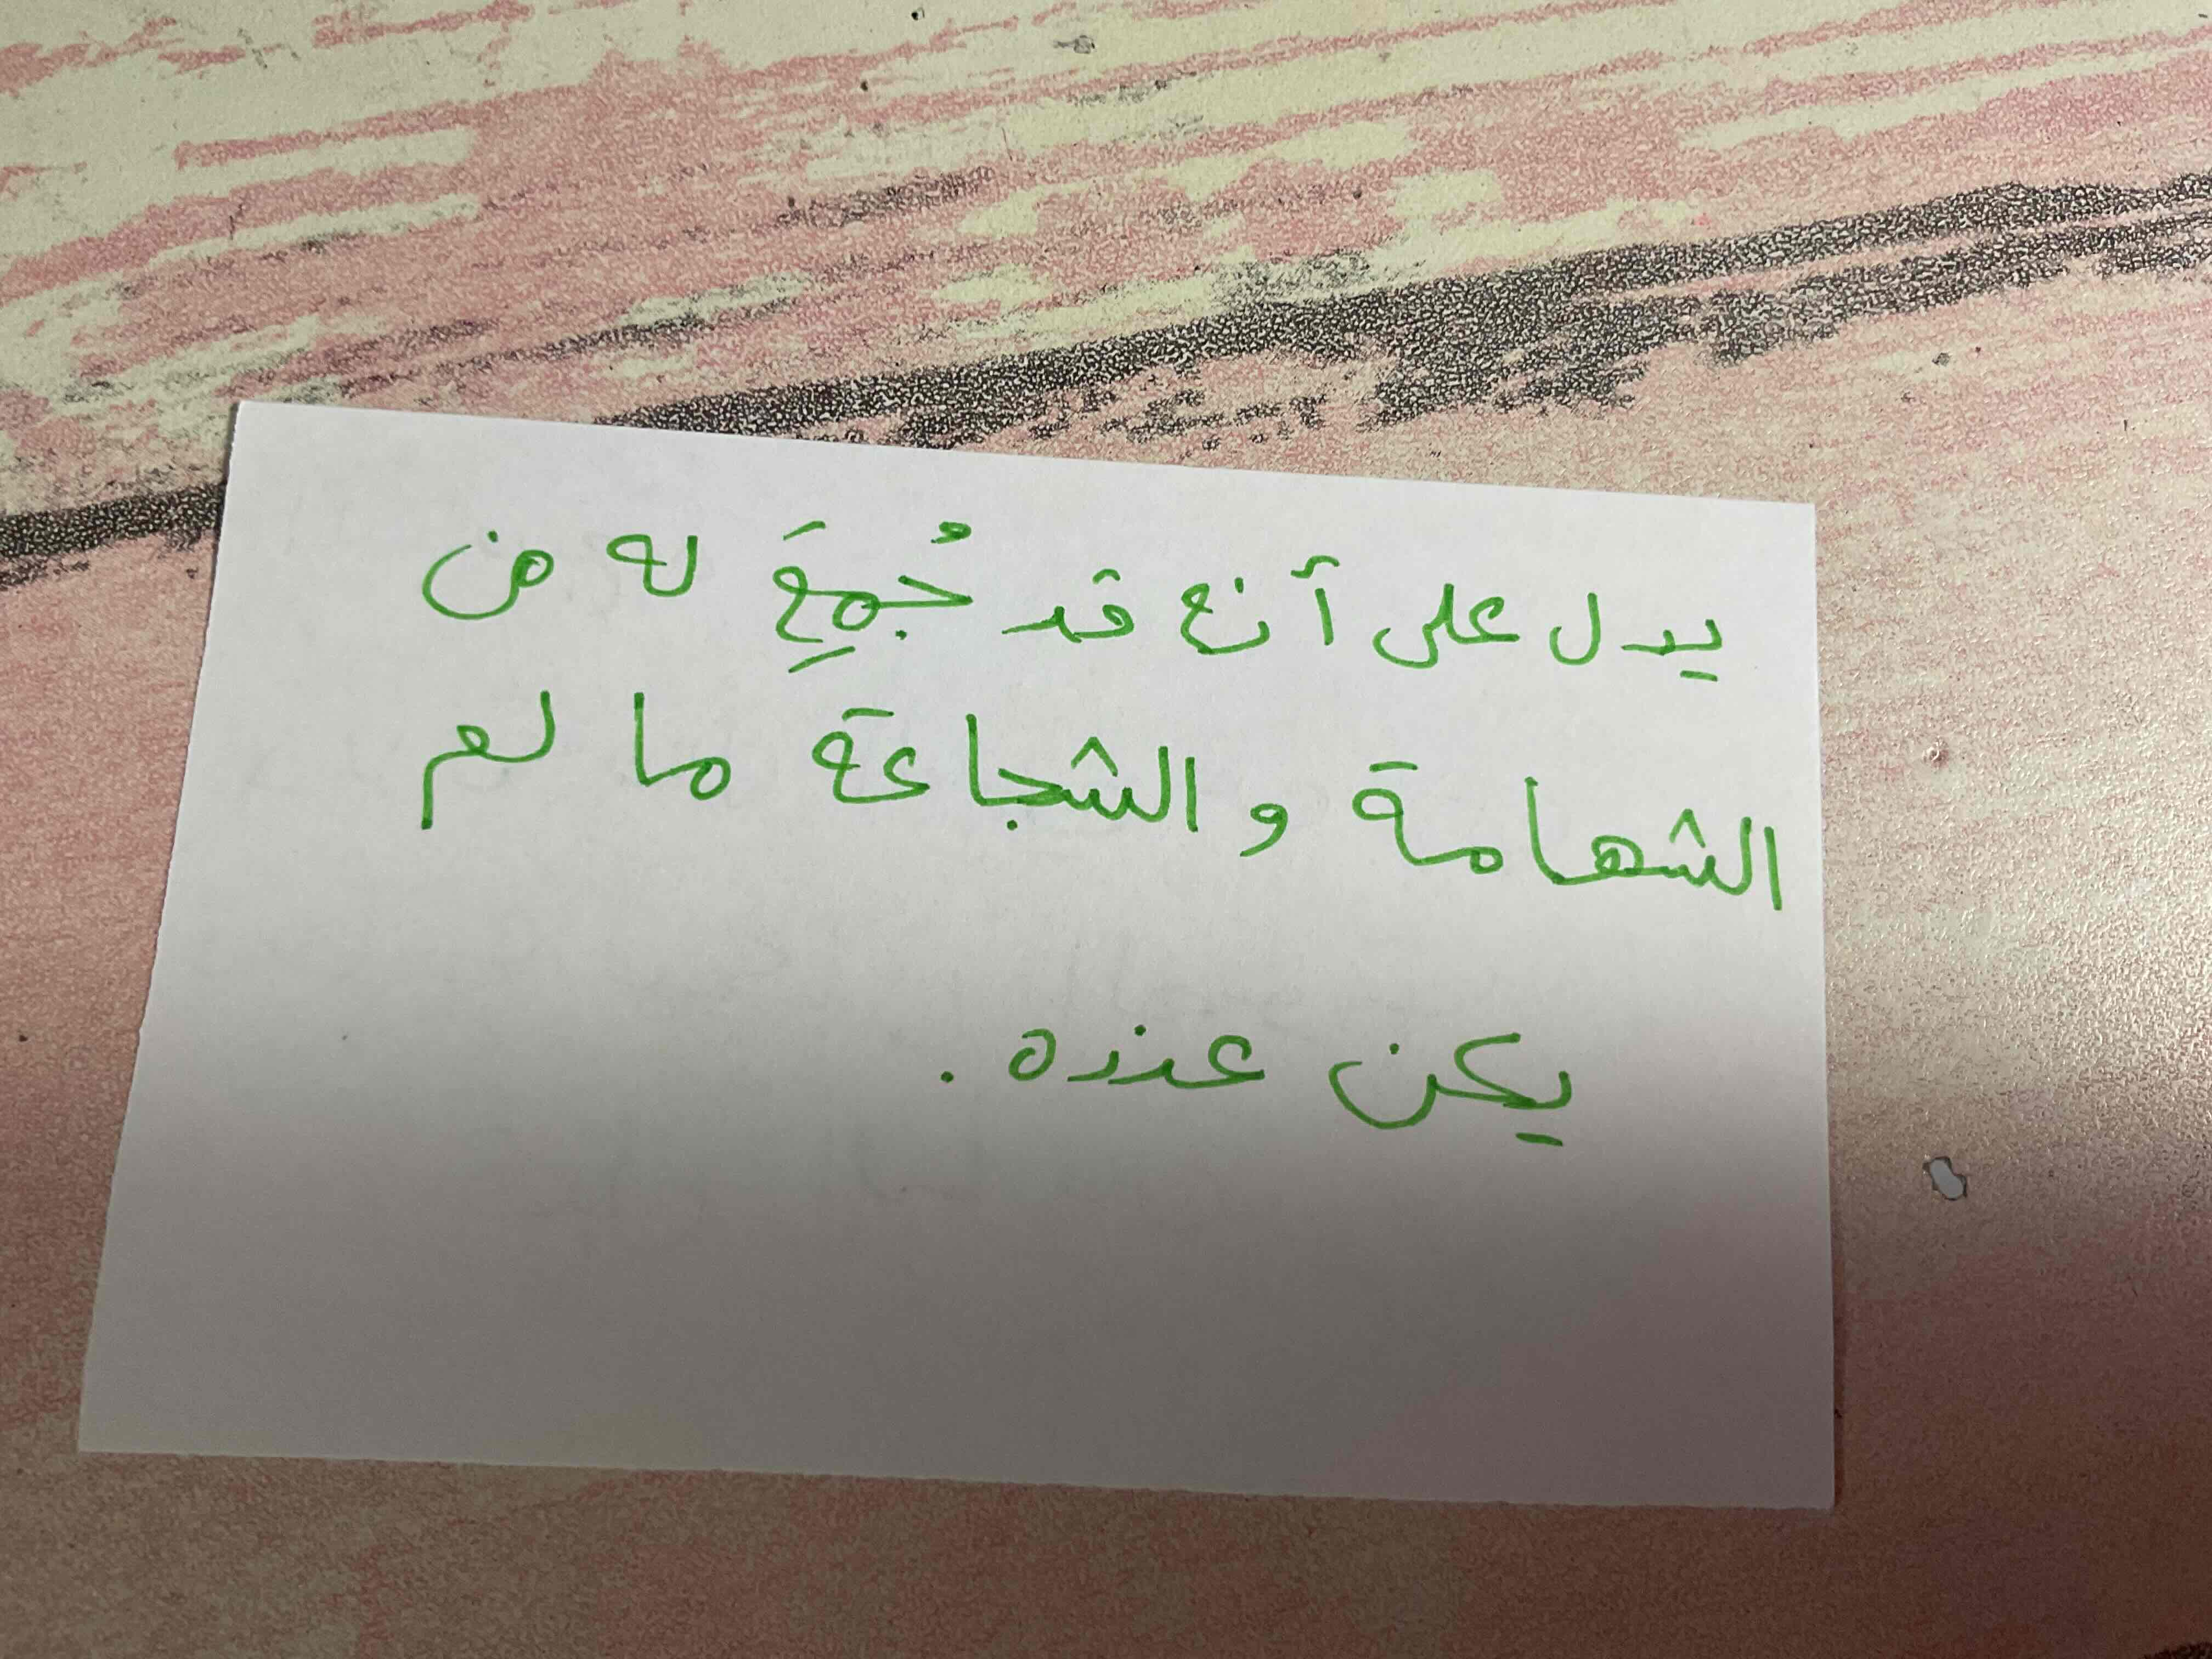 يدل على أنه قد جُمِعَ له من
الشهامة والشجاعة ما لم
يكن عنده.